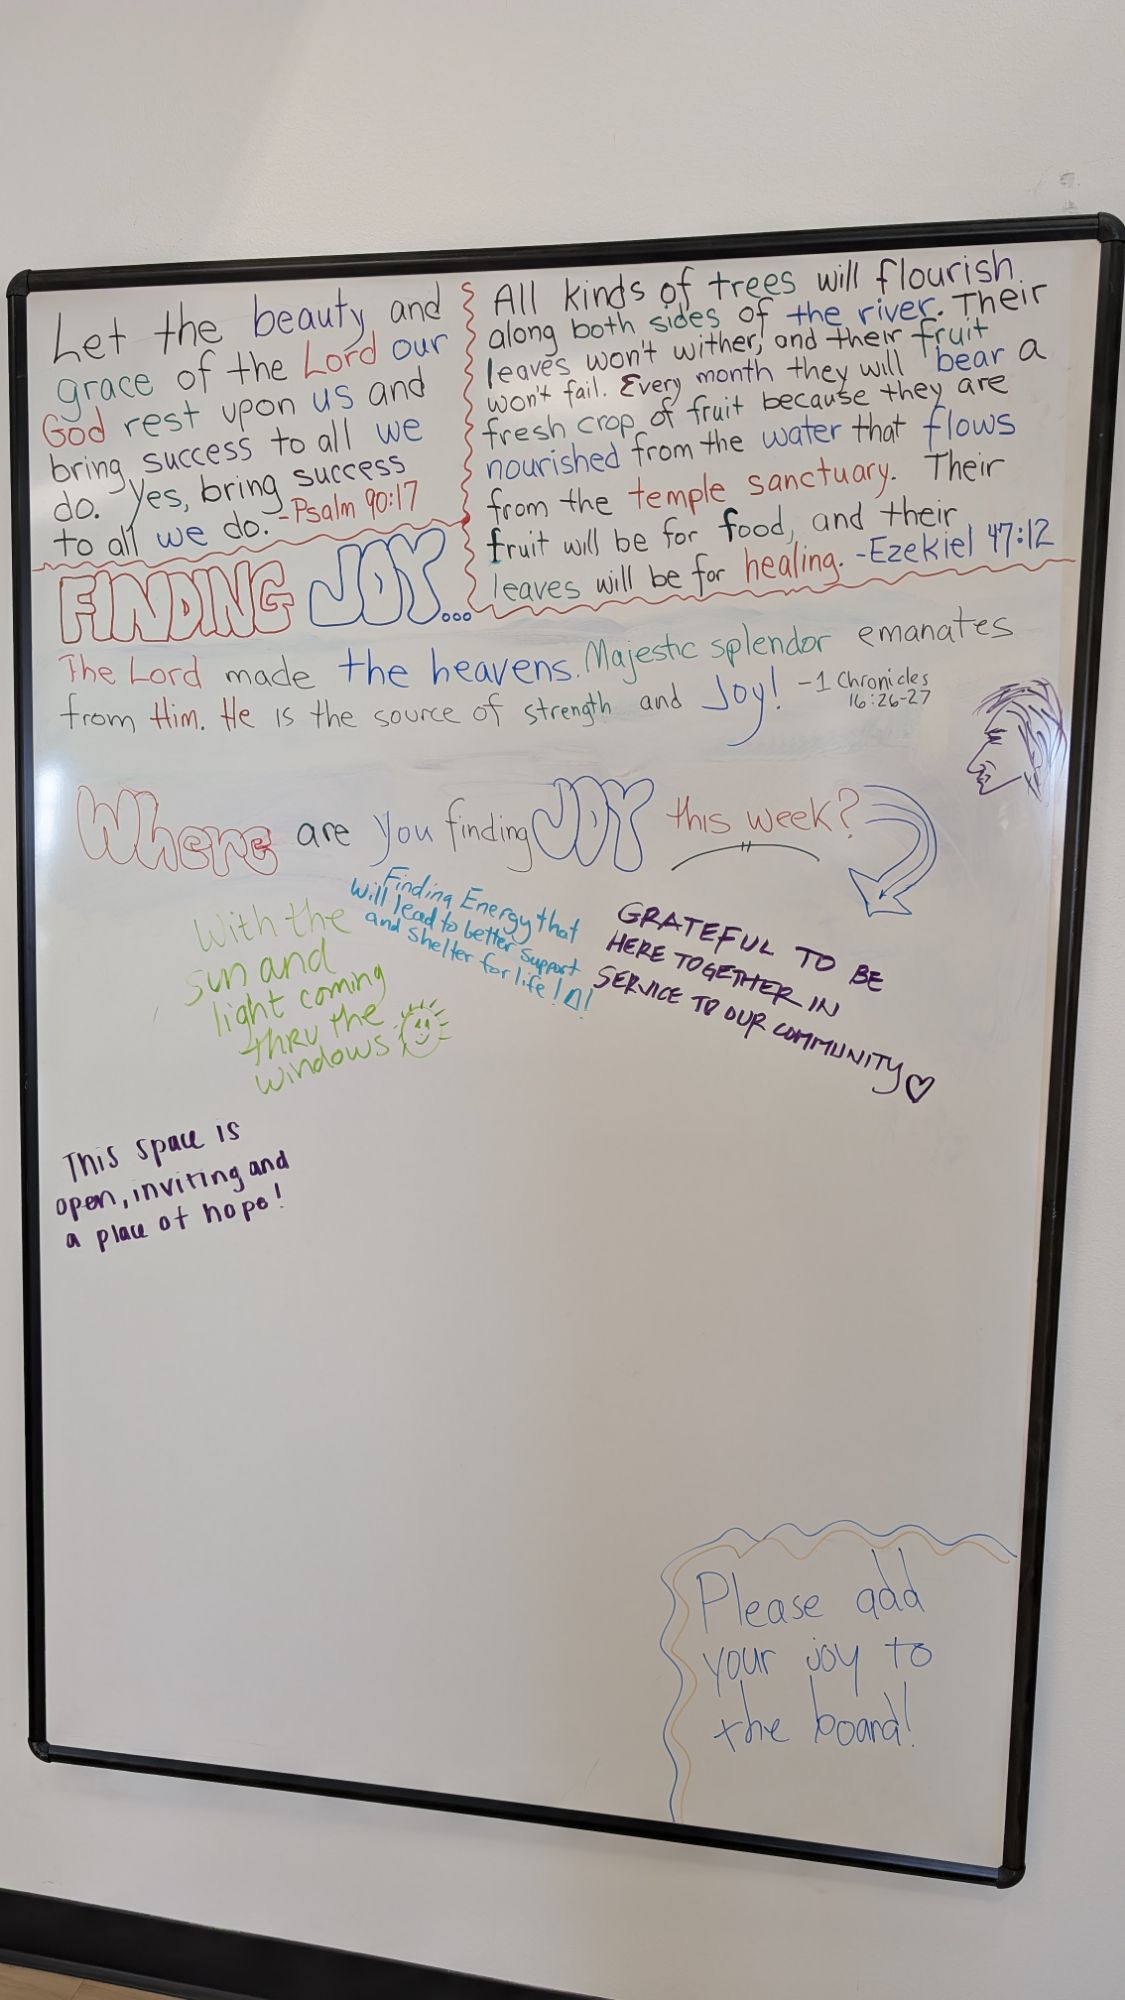 Let the beauty and
grace of the Lord our
God rest upon us and
bring success to all we
do. Yes, bring success
to all we do. -Psalm 90:17
All kinds of trees will flourish
along both sides of the river. Their
leaves won't wither, and their fruit
won't fail. Every month they will bear a
fresh crop of fruit because they are
nourished from the water that flows
from the temple sanctuary. Their
fruit will be for food, and their
leaves will be for healing. -Ezekiel 47:12
FINDING JOY...
The Lord made the heavens. Majestic splendor emanates
from Him. He is the source of strength and Joy! -1 Chronicles
16:26-27
Where are you finding JOY this week?
With the
sun and
light coming
thru the
windows
Finding Energy that
will lead to better support
and shelter for life!
GRATEFUL TO BE
HERE TOGETHER IN
SERVICE TO OUR COMMUNITY ♡
This space is
open, inviting and
a place of hope!
Please add
your joy to
the board!